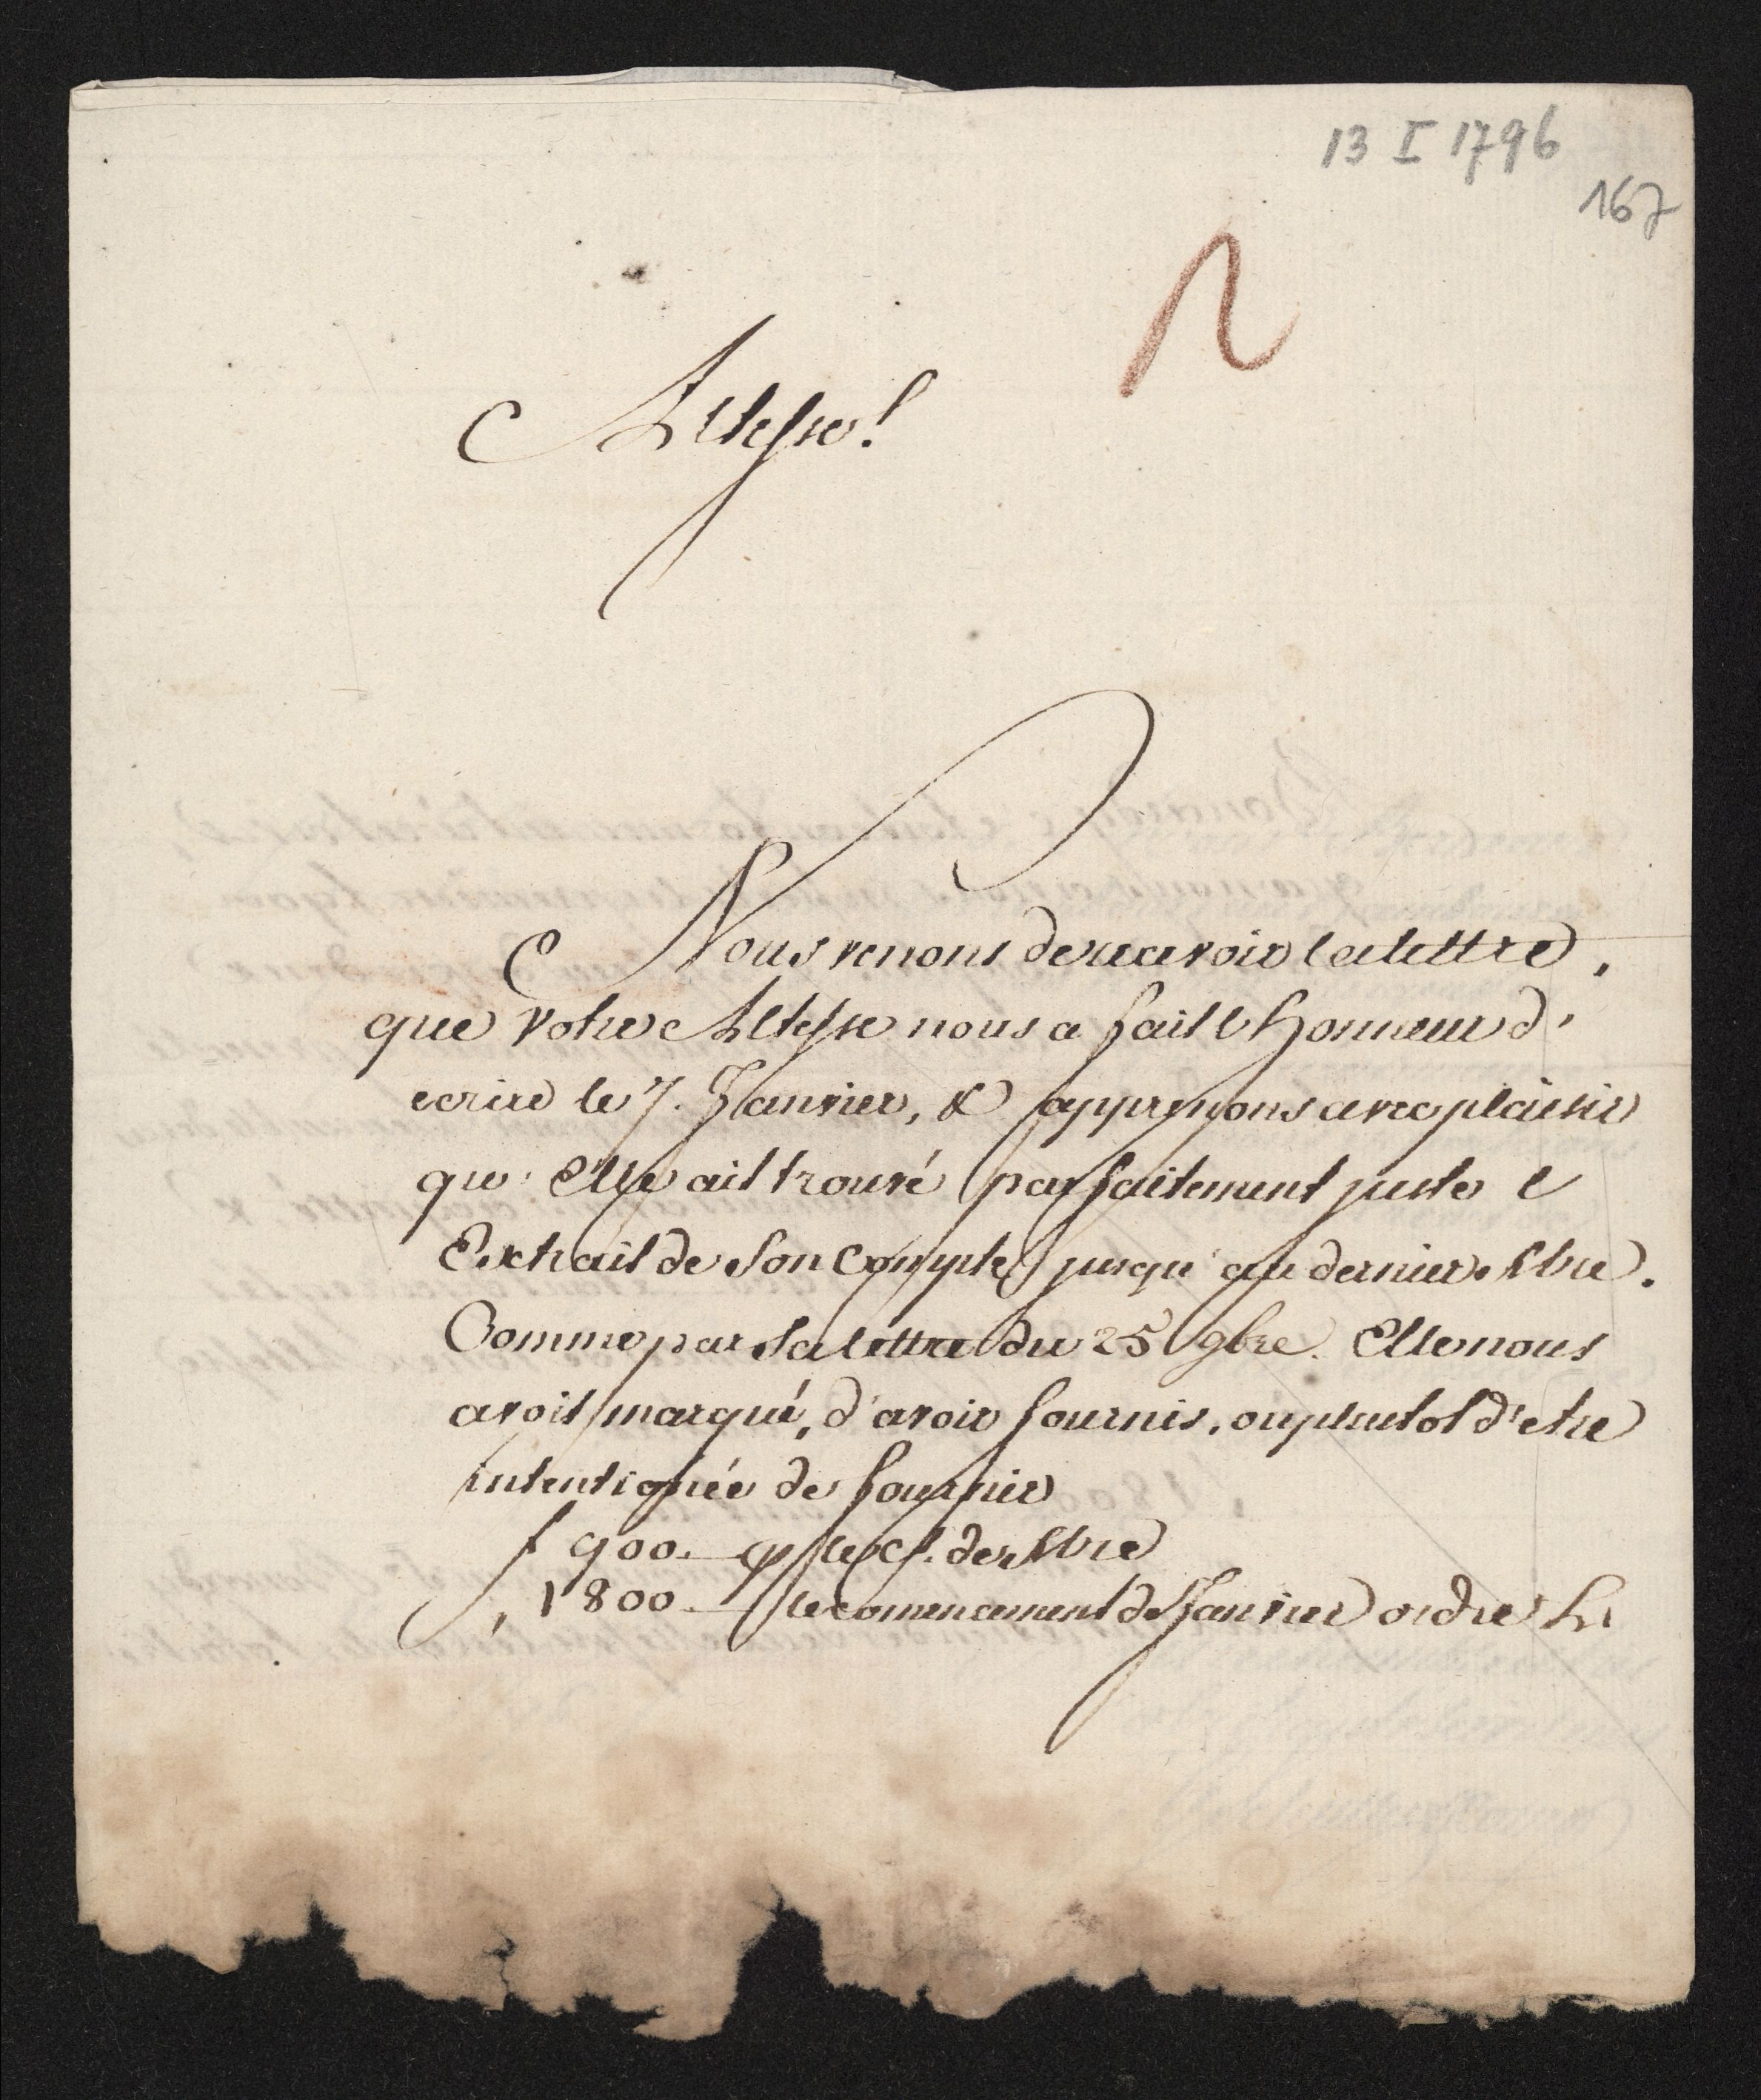 13 I 1796
167
Altesse!
Nous venons de recevoir la lettre,
que votre Altesse nous a fait l'honneur d'
ecrire le 7. Janvier, & apprenons avec plaisir
qu'Elle ait trouvé parfaitement juste l'
Extrait de Son Compte jusqu'au dernier Xbre.
Comme par Sa lettre du 25 9bre. Elle nous
avoit marqué, d'avoir fournis, ou plutot d'etre
intentionée de fournir
f 900.— de Xbre
" 1800.— le comencement de Janvier ordre